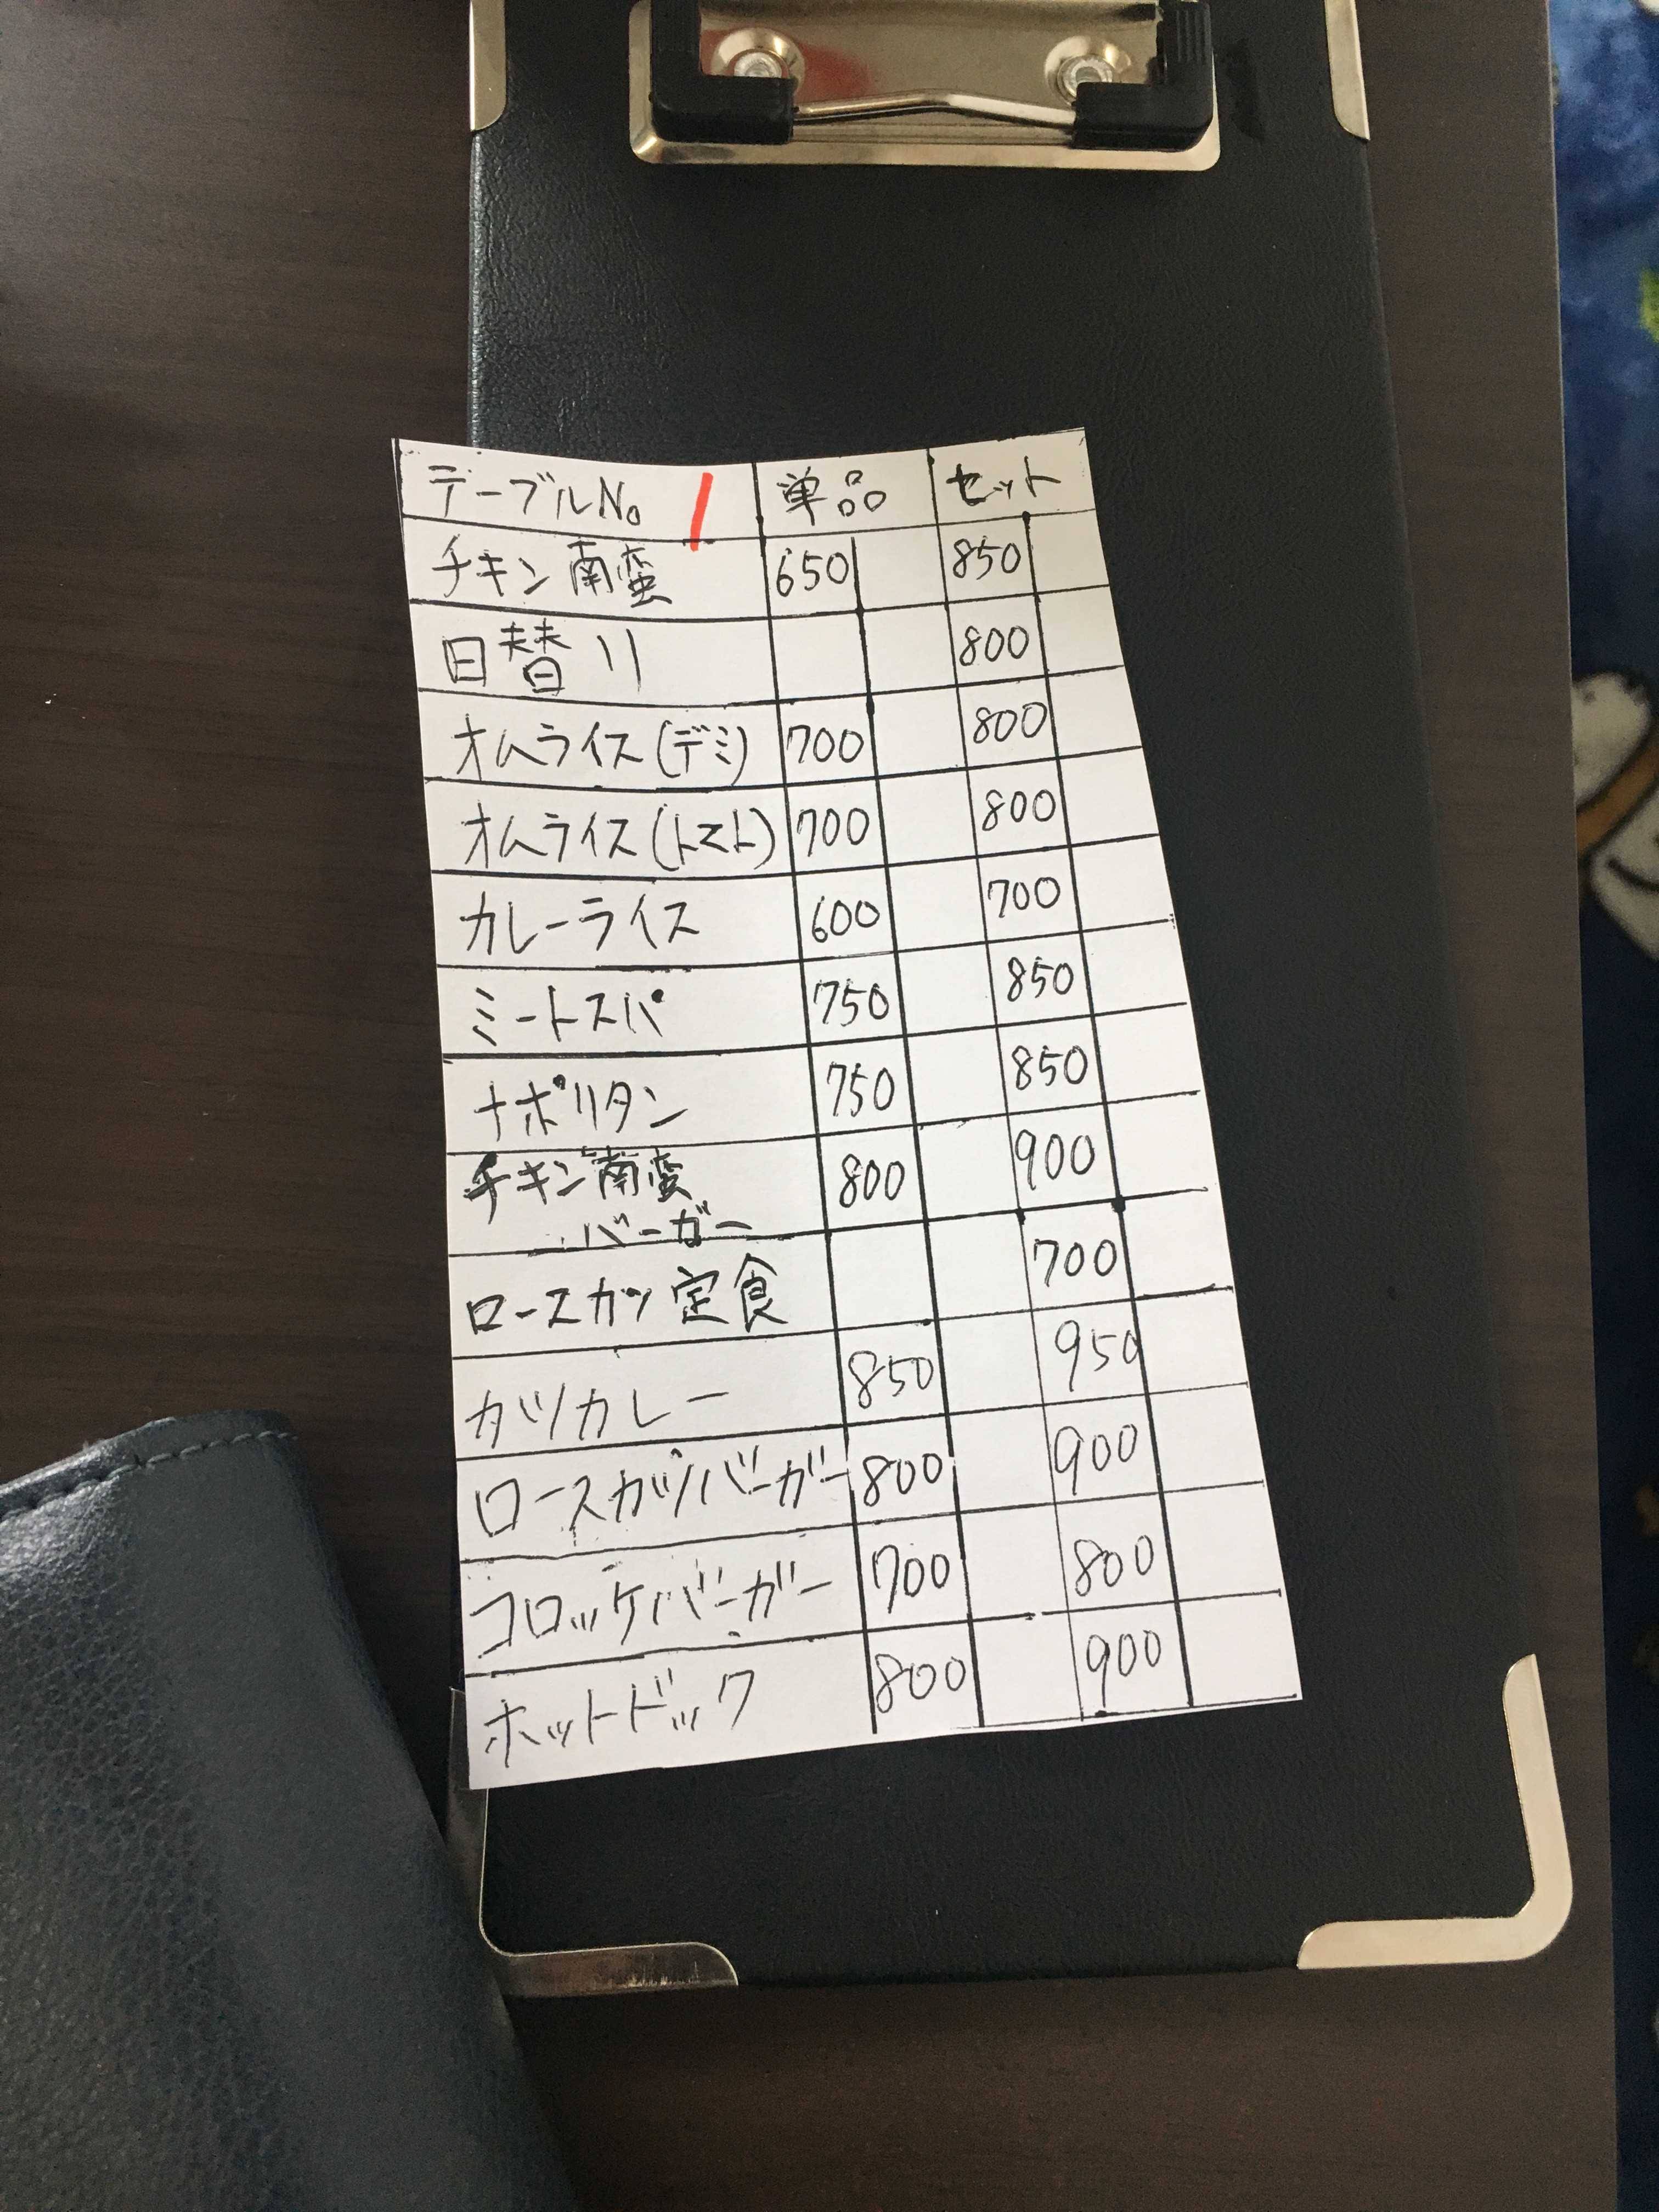 テーブルNo 1 単品 セット
チキン南蛮 650 850
日替り 800
オムライス(デミ) 700 800
オムライス(トマト) 700 800
カレーライス 600 700
ミートスパ 750 850
ナポリタン 750 850
チキン南蛮 800 900
バーガー
ロースカツ定食 700
カツカレー 850 950
ロースカツバーガー 800 900
コロッケバーガー 700 800
ホットドック 800 900